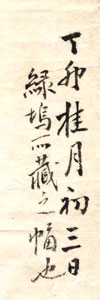 丁卯桂月初三日
緑塢所藏之幅也